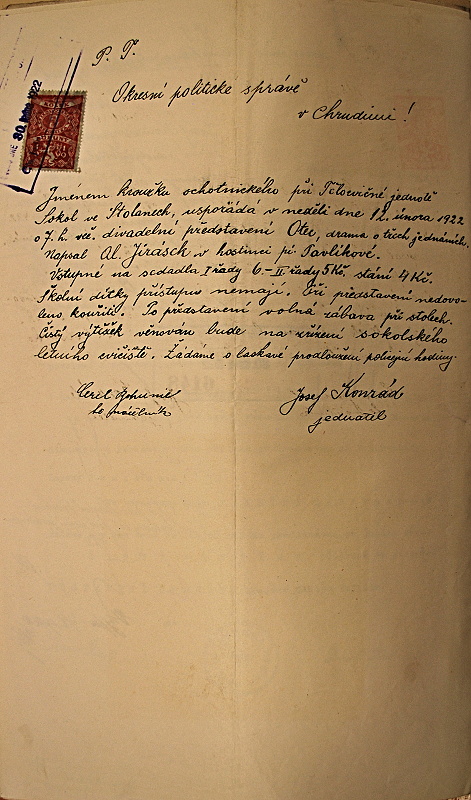 P. T.
Okresní politické správě
v Chrudimi!
30. 1922
Jménem kroužku ochotnického při Tělocvičné jednotě
Sokol ve Stolanech, uspořádá v neděli dne 12. února 1922
o 7. h. več. divadelní představení Otec, drama o třech jednáních.
Napsal Al. Jirásek v hostinci pí. Pavlíkové.
Vstupné na sedadla I řady 6.- II řady 5 Kč, stání 4 Kč.
Školní dítky přístupu nemají. Při představení nedovo-
leno kouřiti. Po představení volná zábava při stolech.
Čistý výtěžek věnován bude na zřízení sokolského
letního cvičiště. Žádáme o laskavé prodloužení policejní hodiny.
Bohumil
Josef Konrád
jednatel